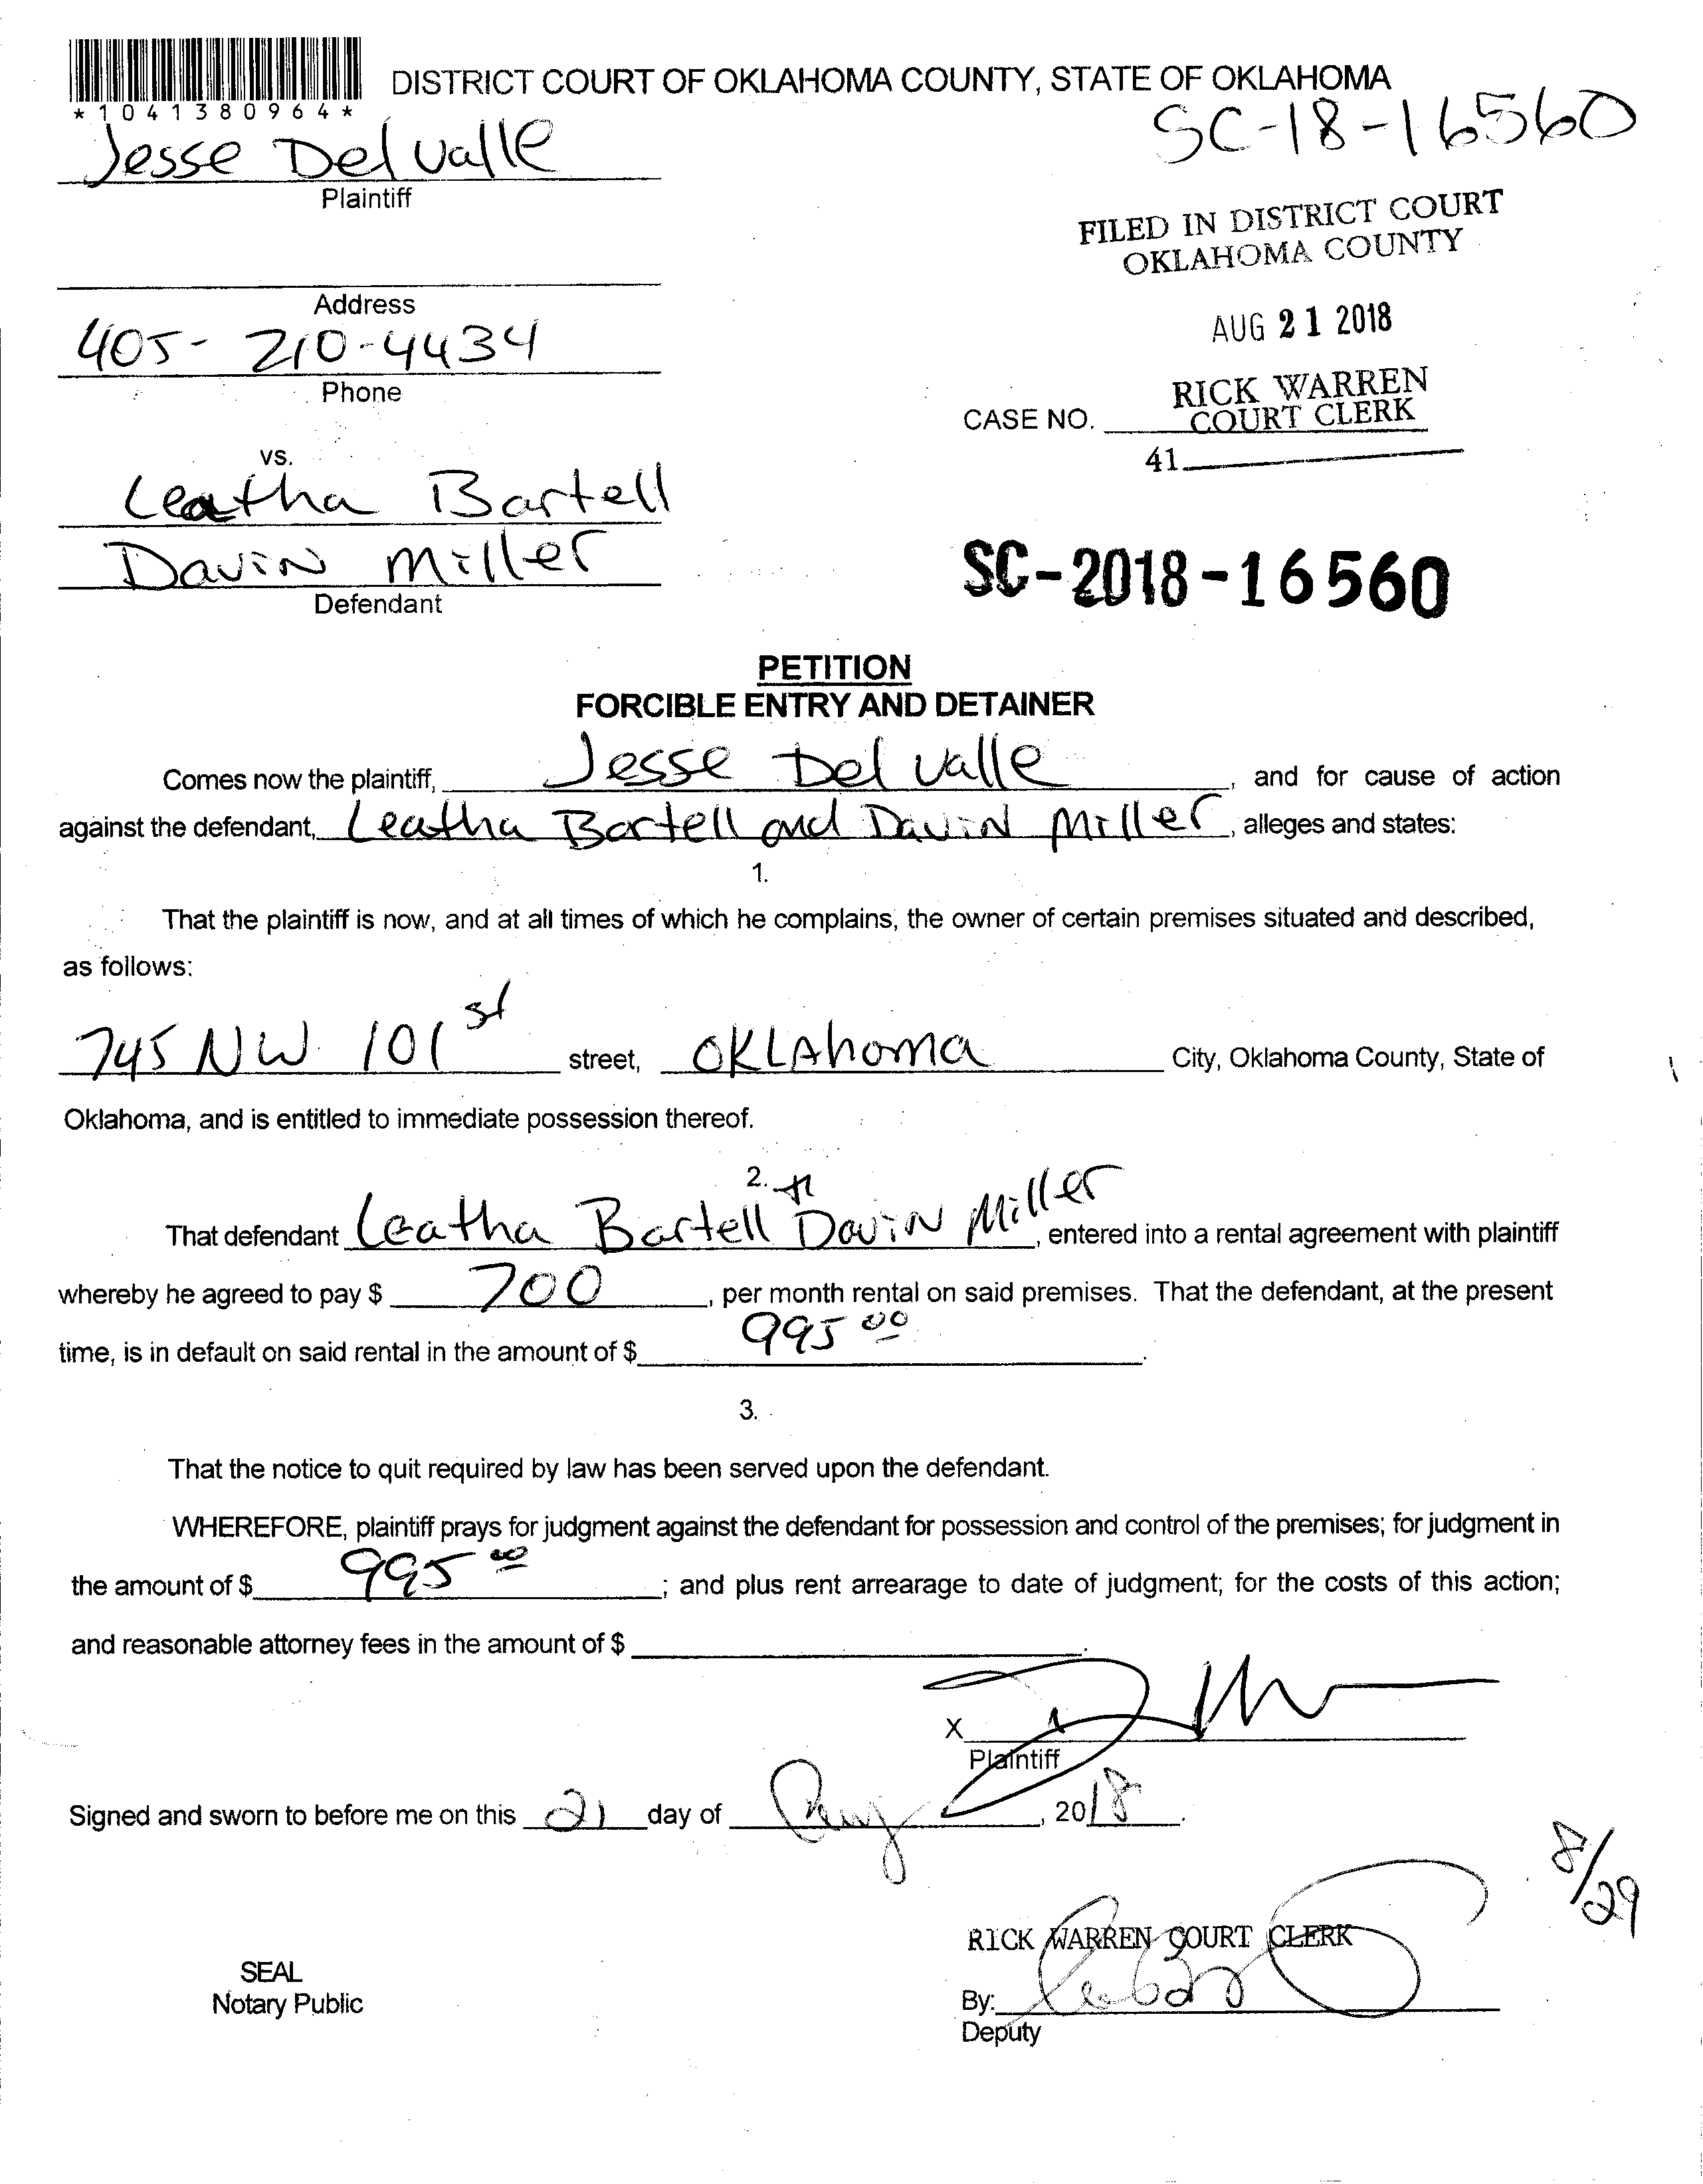 DISTRICT COURT OF OKLAHOMA COUNTY, STATE OF OKLAHOMA
*1041380964*
SC-18-16560
Jesse Del Valle
Plaintiff
FILED IN DISTRICT COURT
OKLAHOMA COUNTY
Address
AUG 21 2018
405-210-4434
Phone
RICK WARREN
CASE NO. COURT CLERK
41
vs.
Leatha Bartell
Davin Miller
Defendant
SC-2018-16560
PETITION
FORCIBLE ENTRY AND DETAINER
Comes now the plaintiff, Jesse Del Valle, and for cause of action
against the defendant, Leatha Bartell and Davin Miller, alleges and states:
1.
That the plaintiff is now, and at all times of which he complains, the owner of certain premises situated and described,
as follows:
745 NW 101 st street, OKLAhoma City, Oklahoma County, State of
Oklahoma, and is entitled to immediate possession thereof.
2.
That defendant Leatha Bartell Davin Miller, entered into a rental agreement with plaintiff
whereby he agreed to pay $ 700, per month rental on said premises. That the defendant, at the present
time, is in default on said rental in the amount of $ 995 00.
3.
That the notice to quit required by law has been served upon the defendant.
WHEREFORE, plaintiff prays for judgment against the defendant for possession and control of the premises; for judgment in
the amount of $ 995 00; and plus rent arrearage to date of judgment; for the costs of this action;
and reasonable attorney fees in the amount of $.
X
Plaintiff
Signed and sworn to before me on this 21 day of Aug, 2018.
8/29
RICK WARREN COURT CLERK
SEAL
Notary Public
By:
Deputy